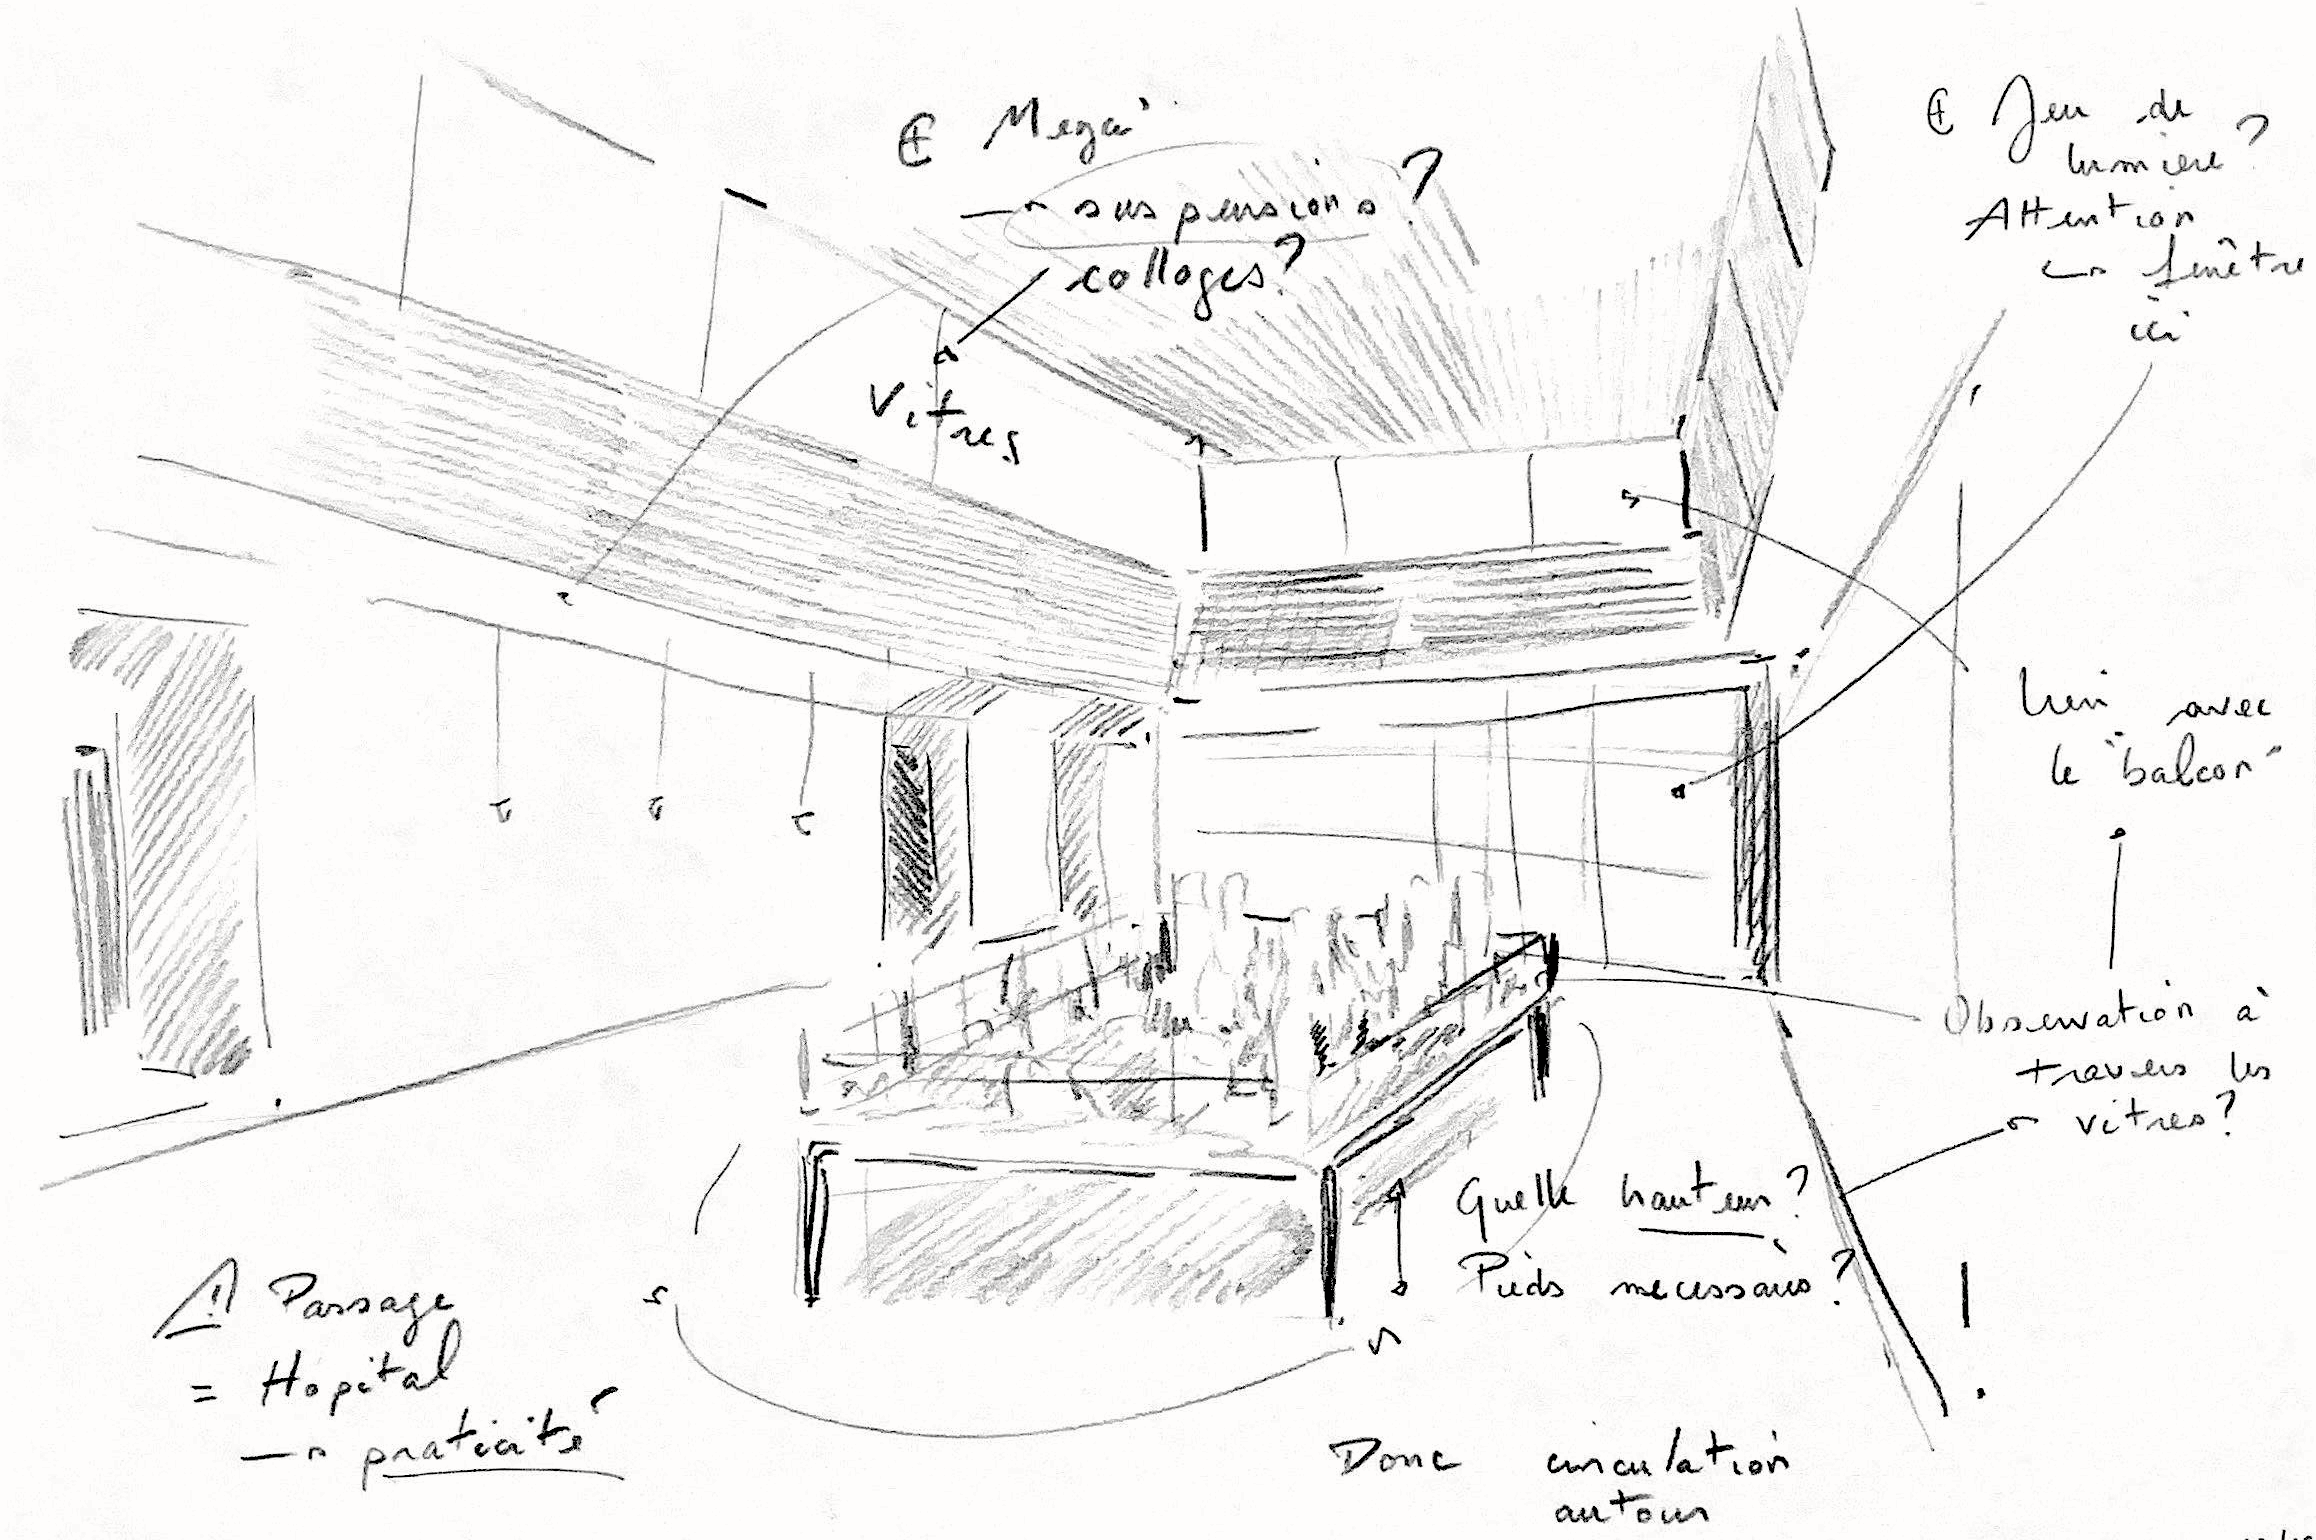 → suspensions?
collages?
Vitres
Jeu de
lumière?
Attention
↳ fenêtre
ici
lien avec
le "balcon"
Observation à
travers les
→ vitres?
Quelle hauteur?
Pieds necessaires?
⚠ Passage
= Hôpital
→ praticité
Donc circulation
autour